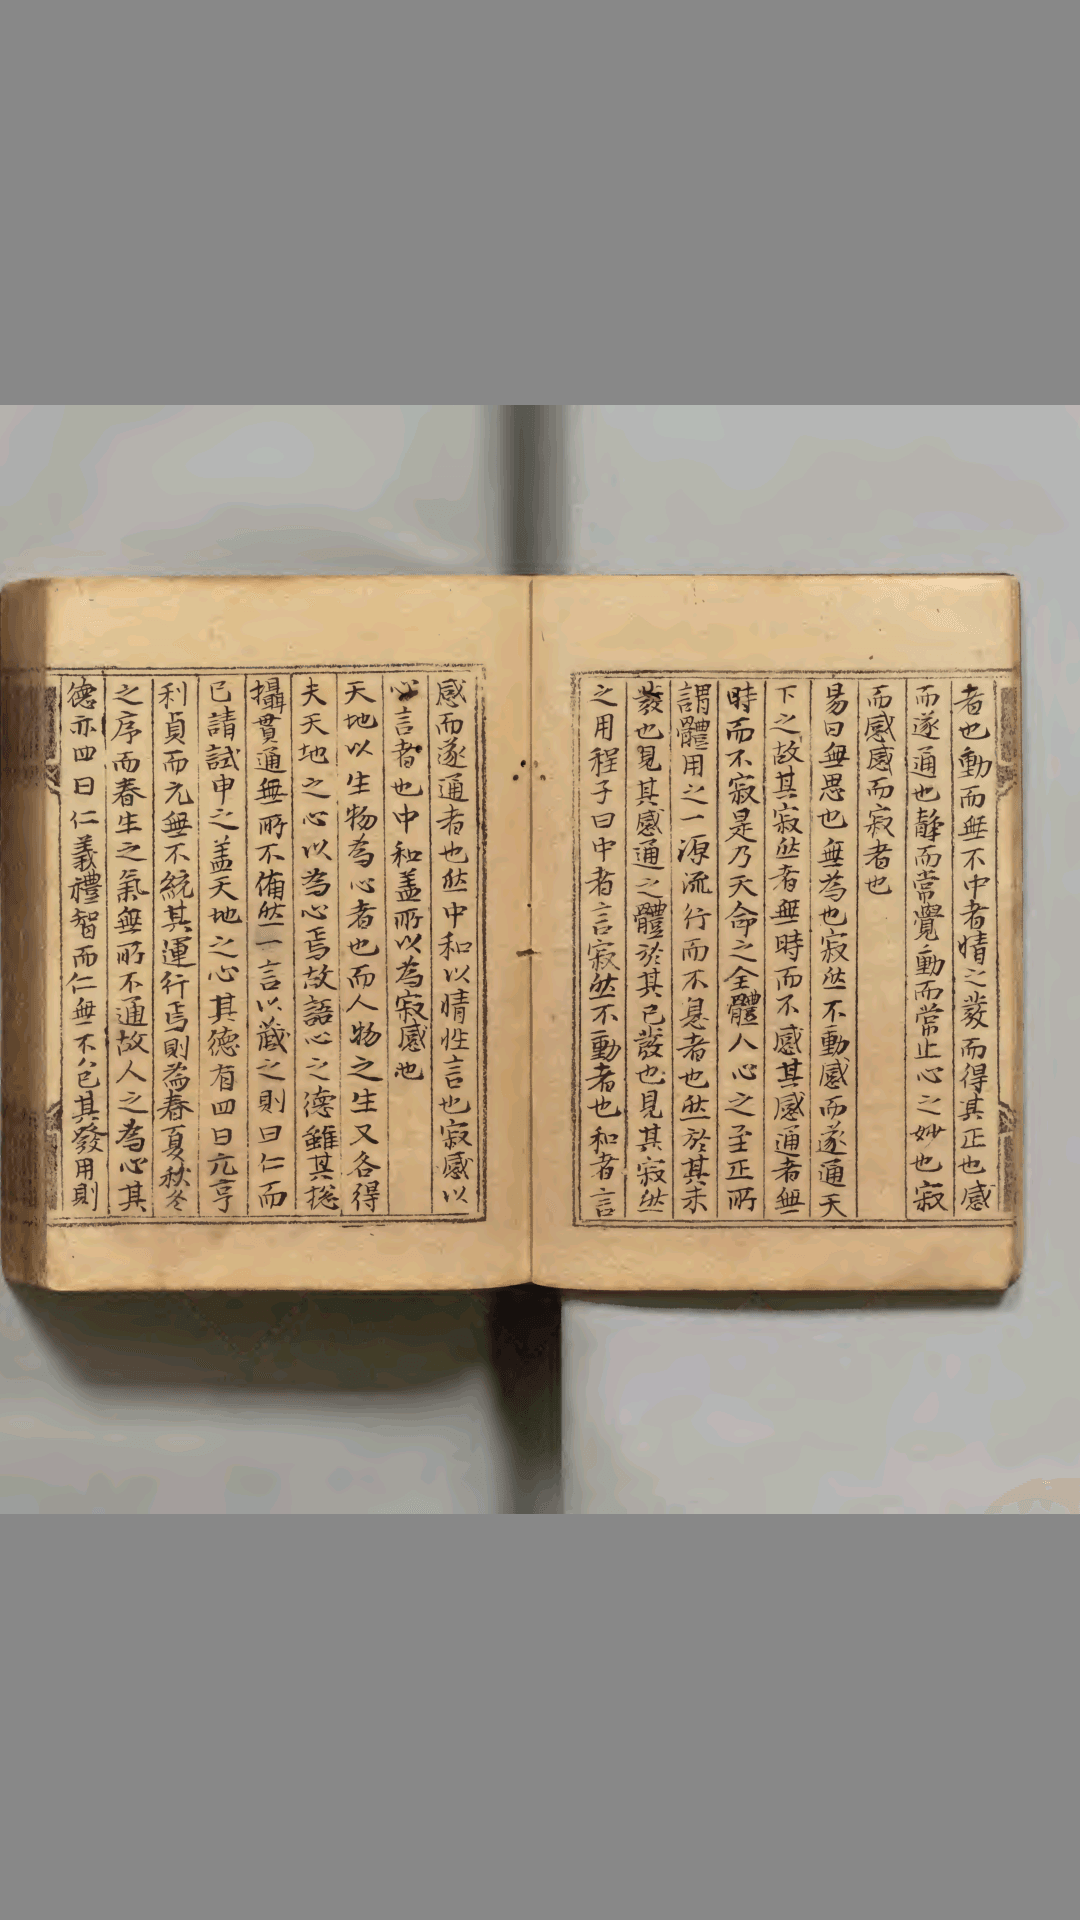 者也動而無不中者情之發而得其正也感
而遂通也靜而常覺動而常止心之妙也寂
而感感而寂者也
易曰無思也無為也寂然不動感而遂通天
下之故其寂然者無時而不感其感通者無
時而不寂是乃天命之全體人心之至正所
謂體用之一源流行而不息者也然於其未
發也見其感通之體於其已發也見其寂然
之用程子曰中者言寂然不動者也和者言
感而遂通者也然中和以情性言也寂感以
心言者也中和蓋所以為寂感也
天地以生物為心者也而人物之生又各得
夫天地之心以為心焉故語心之德雖其揔
攝貫通無所不備然一言以蔽之則曰仁而
已請試申之蓋天地之心其德有四曰元亨
利貞而元無不統其運行焉則為春夏秋冬
之序而春生之氣無所不通故人之為心其
德亦四曰仁義禮智而仁無不包其發用則